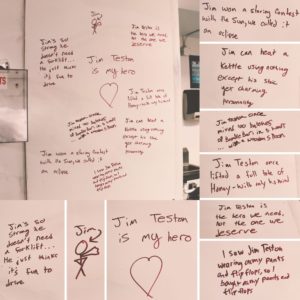 Jim
Jim's so
strong he
doesn't need
a forklift...
He just thinks
it's fun to
drive.
Jim Teston is
the hero we need,
not the one we
deserve
Jim Teston
is my hero
Jim Teston once
lifted a full tote of
Honey - with only his mind
Jim can heat a
Kettle using nothing
except his shear
charming
personality
Jim Teston once
mixed two batches
with a wooden spoon
Jim won a staring contest
with the Sun, we called it
an eclipse
I saw Jim Teston
wearing army pants
and flip flops, so I
bought army pants and
flip flops
Jim won a staring contest
with the Sun, we called it
an eclipse
Jim can heat a
Kettle using nothing
except his
charming
personality
Jim Teston once
mixed two batches
with a wooden spoon
Jim Teston once
lifted a full tote of
Honey - with only his mind
Jim Teston is
the hero we need,
not the one we
deserve
I saw Jim Teston
wearing army pants
and flip flops, so I
bought army pants and
flip flops
Jim's so
strong he
doesn't need
a forklift...
He just thinks
it's fun to
drive.
Jim
Jim Teston
is my hero